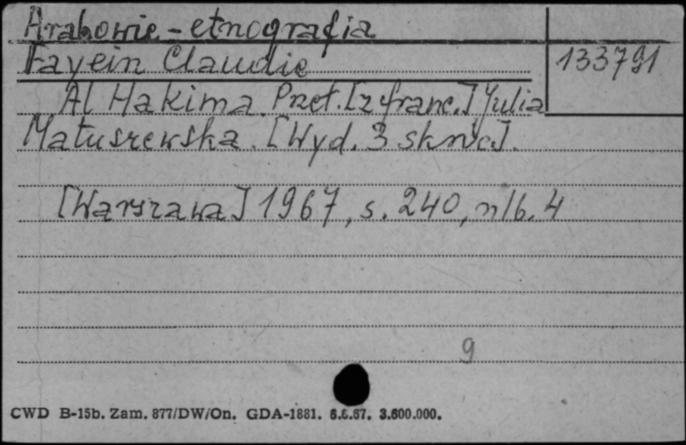 Arabowie - etnografia
Fayein Claudie 133791
Al Hakima. Przeł. [z franc.] Julia
Matuszewska. [Wyd. 3 skróc].
[Warszawa] 1967, s. 240, nlb. 4
9
CWD B-15b. Zam. 877/DW/On. GDA-1881. 6.6.67. 3.600.000.